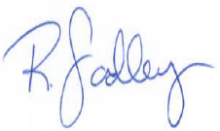 R. Sadley